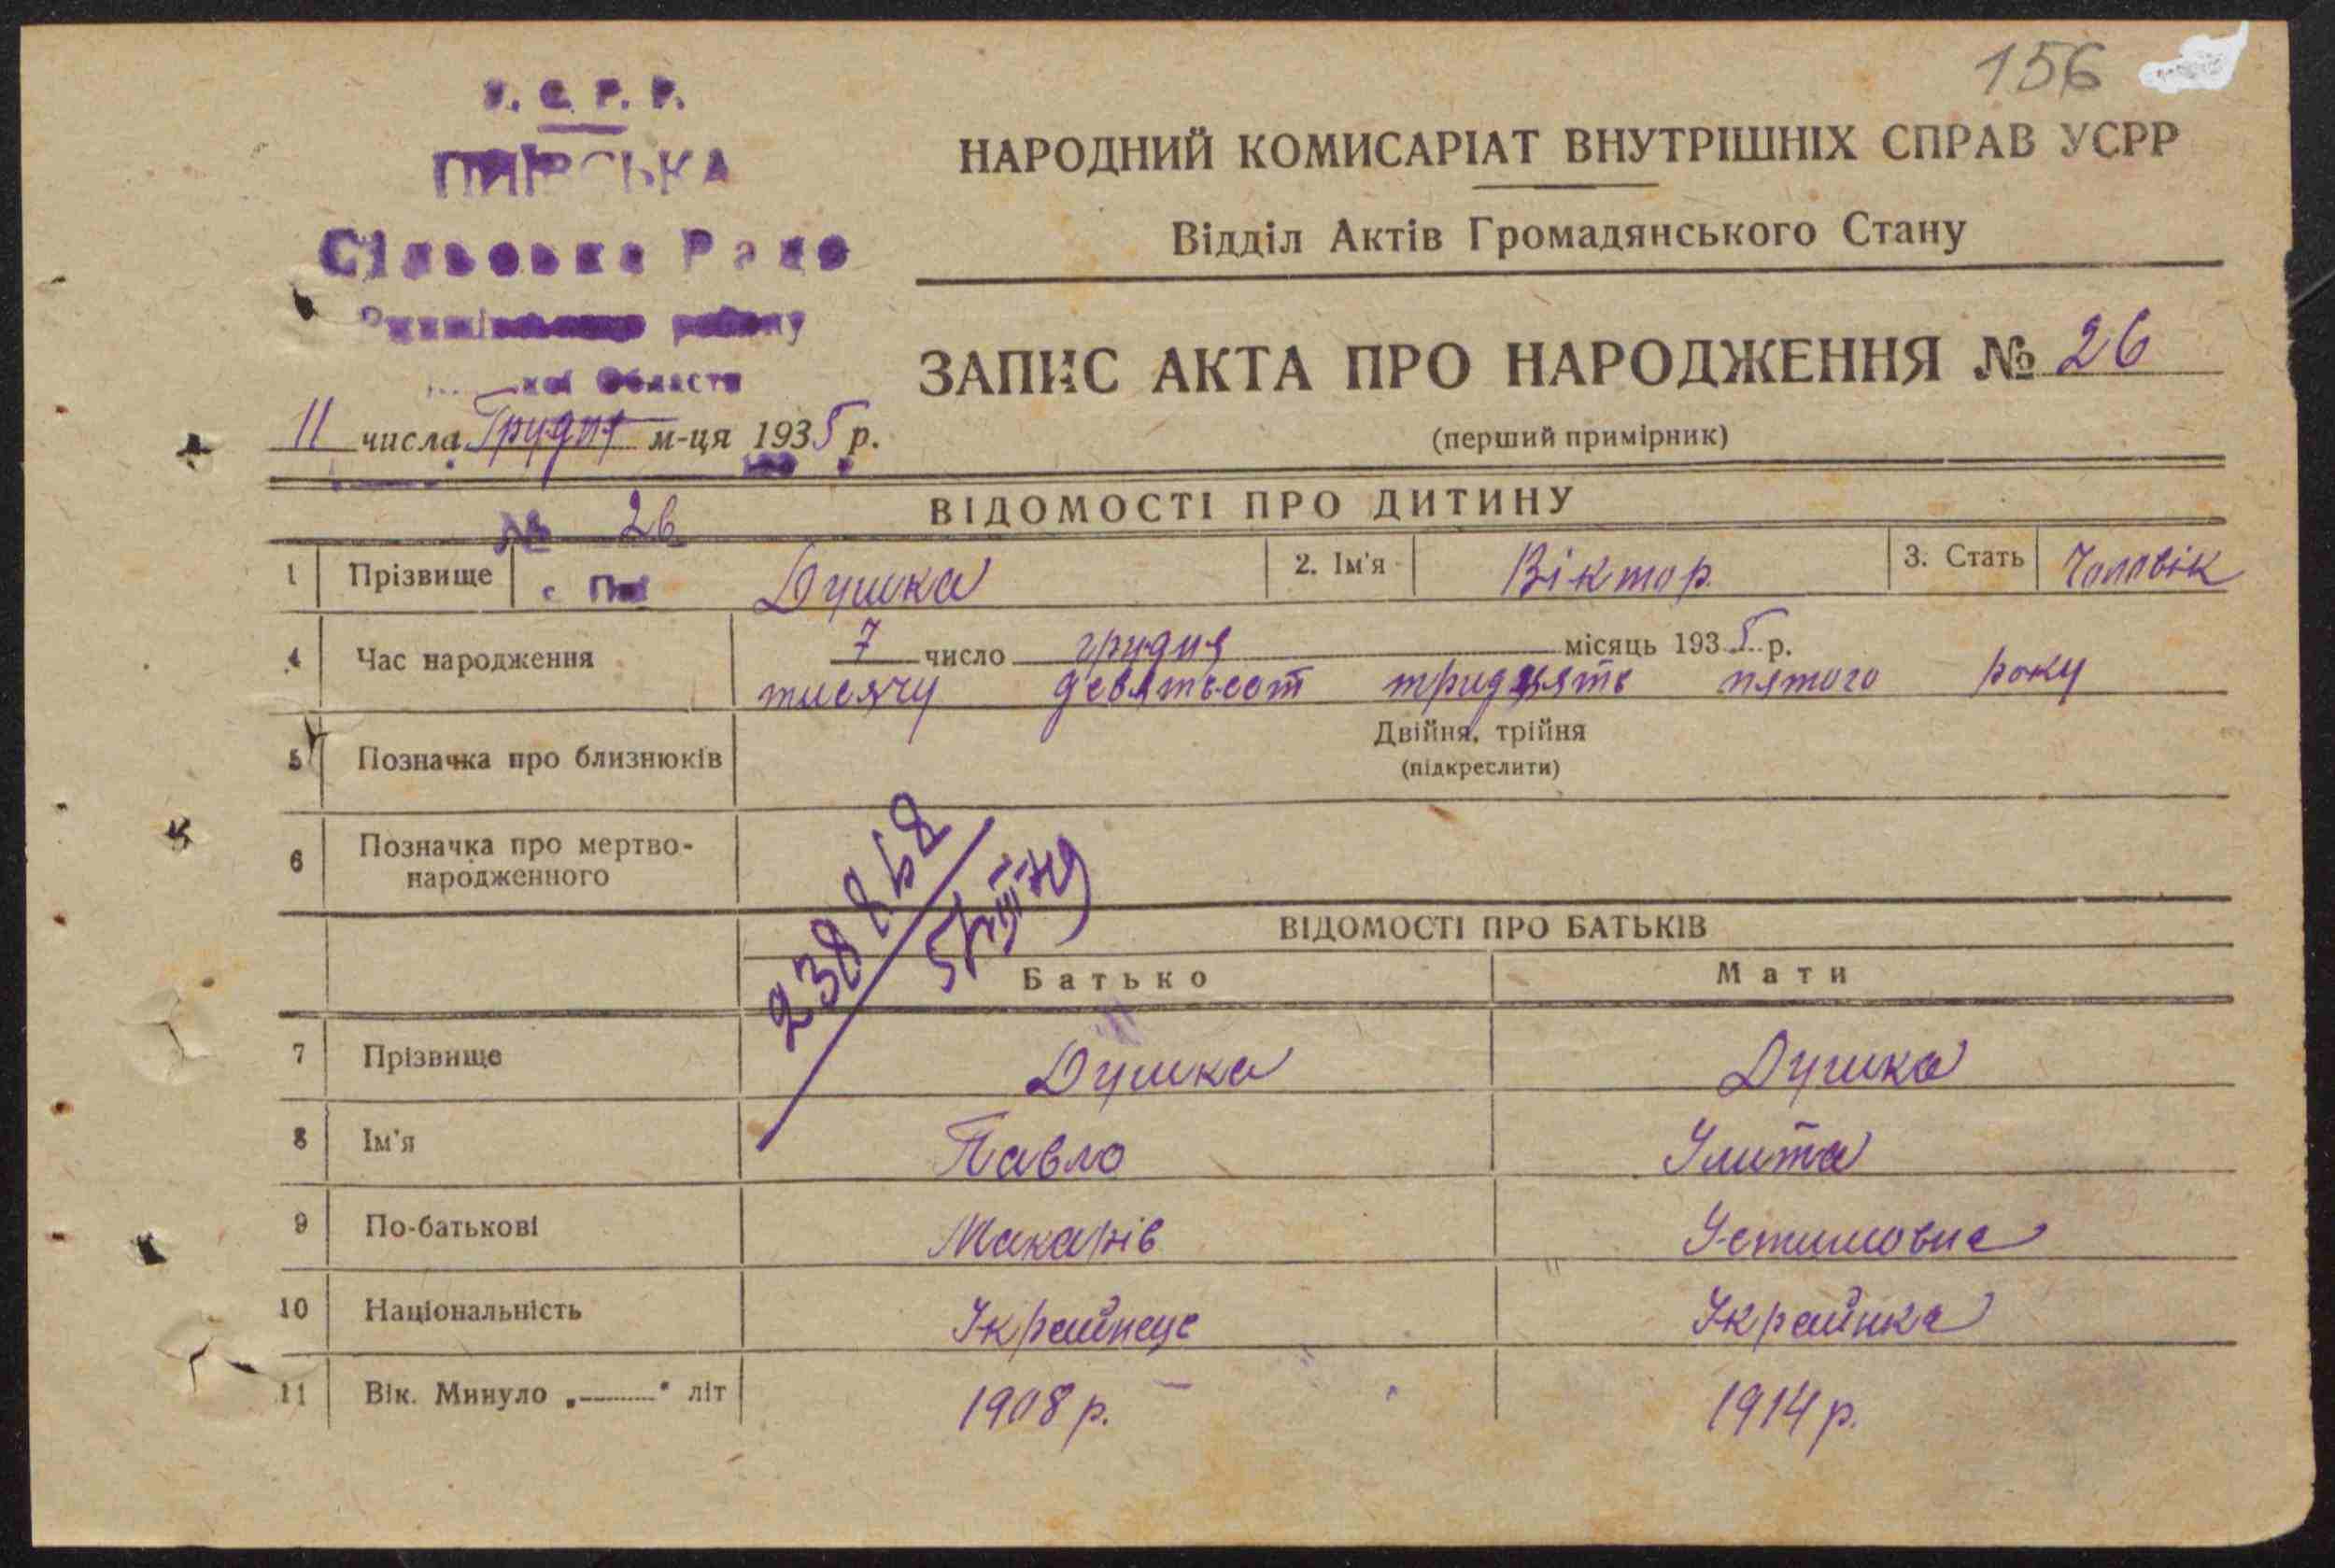 156
У. С. Р. Р.
НАРОДНИЙ КОМИСАРІАТ ВНУТРІШНІХ СПРАВ УСРР
Відділ Актів Громадянського Стану
Сільська Рада
району
Области
ЗАПИС АКТА ПРО НАРОДЖЕННЯ № 26
(перший примірник)
11 числа Грудня м-ця 1935 р.
№ 26
ВІДОМОСТІ ПРО ДИТИНУ
1 Прізвище Душка 2. Ім'я Віктор 3. Стать Чоловік
4 Час народження 7 число грудня місяць 1935 р.
тисячу девятьсот тридцять пятого року
5 Позначка про близнюків Двійня, трійня
(підкреслити)
6 Позначка про мертво-
народженного
ВІДОМОСТІ ПРО БАТЬКІВ
Батько Мати
7 Прізвище Душка Душка
8 Ім'я Павло Улита
9 По-батькові Макарів Устимовна
10 Національність Українець Українка
11 Вік. Минуло „ “ літ 1908 р. 1914 р.